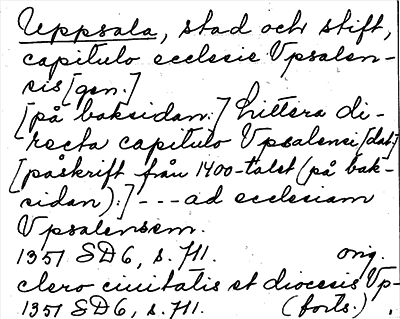 Uppsala, stad och stift,
capitulo ecclesie Vpsalen-
sis [gen.]
[på baksidan:] Littera di-
recta capitulo Vpsalensi [dat.]
[påskrift från 1400-talet (på bak-
sidan):] --- ad ecclesiam
Vpsalensem.
1351 SD6, s. 711. orig.
clero ciuitatis et diocesis Vp-
1351 SD6, s. 711. (forts.)